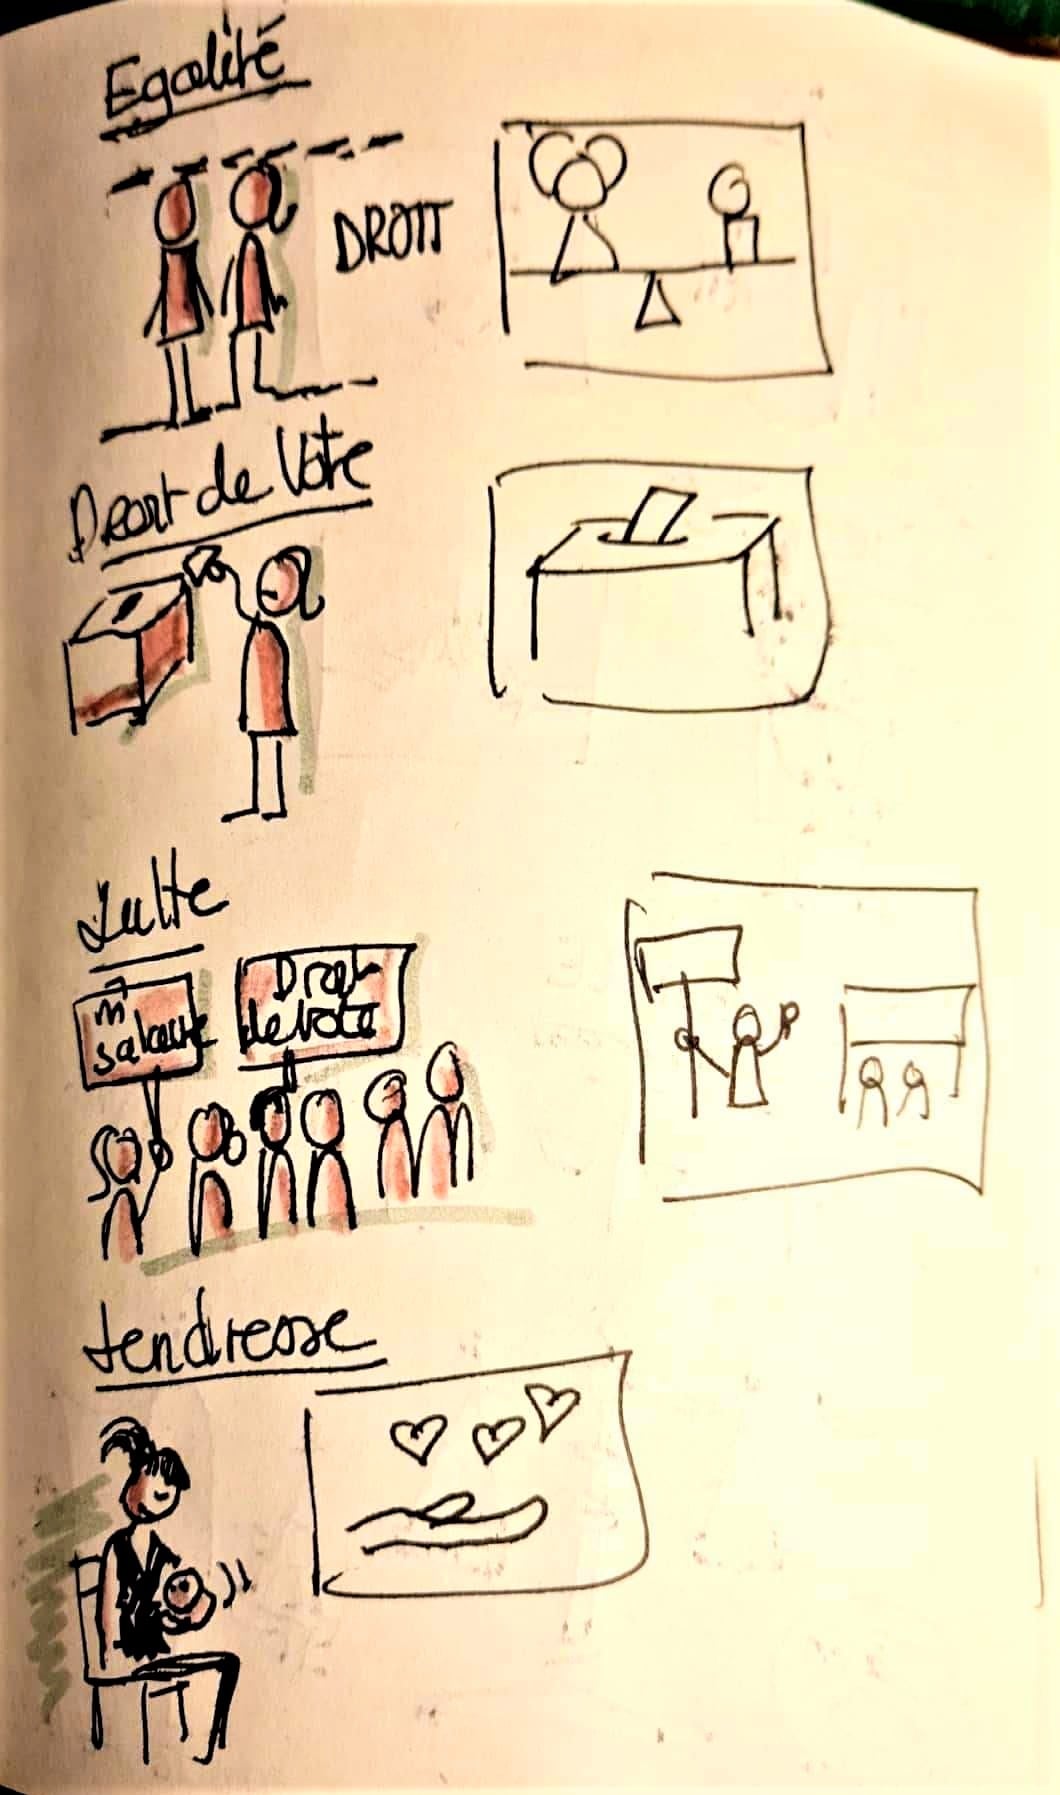 Egalité
DROIT
Droit de Vote
Lutte
salaire
Droit
de Vote
tendresse